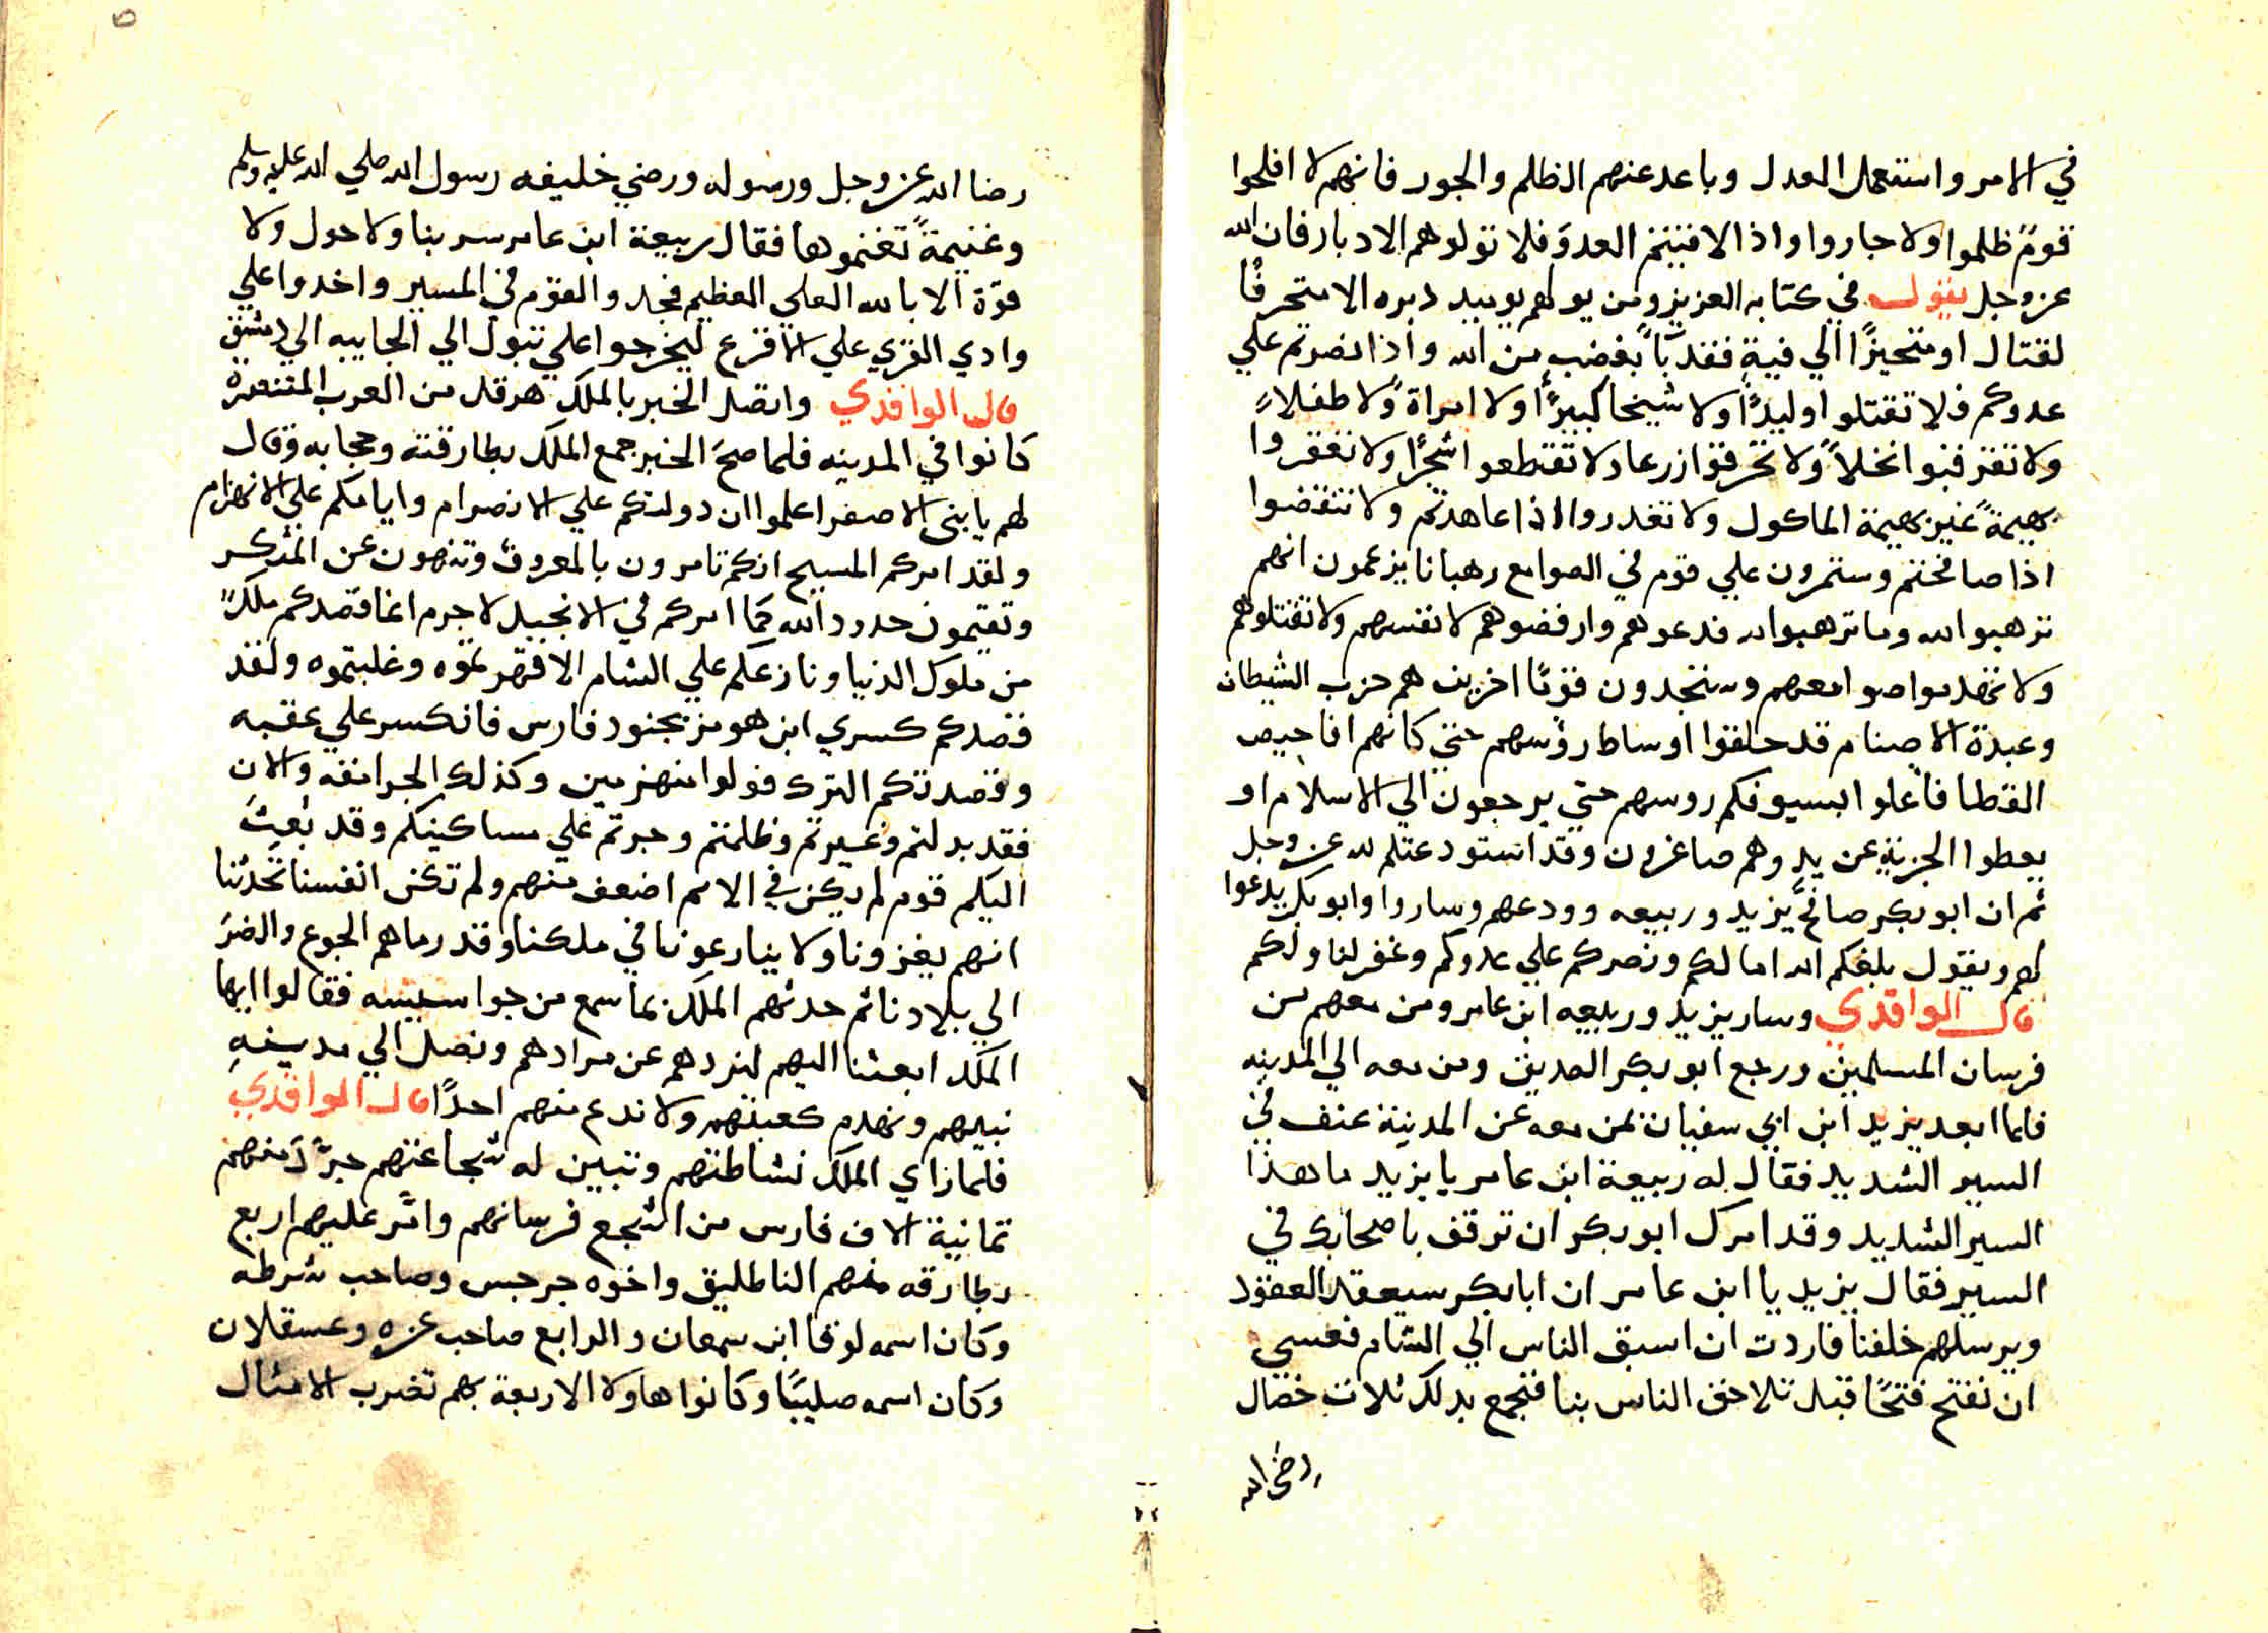 في الامر واستعمل العدل وباعد عنهم الظلم والجور فانهم لا افلحوا
قومً ظلموا ولا جاروا واذا لاقيتم العدوَ فلا تولوهم الادبار فان الله
عز وجل يقول في كتابه العزيز ومن يولهم يوميد دبره الا متحرفًا
لقتال او متحيزًا الي فيةٍ فقد بًا بغضبٍ من الله واذا نصرتم علي
عدوكم فلا تقتلوا وليدًا ولا شيخا كبيرًا ولا امراة ولا طفلاً
ولا تقربوا نخلاً ولا تحرقوا زرعا ولا تقتطعو اشجرًا ولا تعقروا
بهيمةً غير بهيمة الماكول ولا تغدروا اذا عاهدتم ولا تنقضوا
اذا صالحتم وستمرون علي قوم في الصوامع رهبانا يزعمون انهم
ترهبوا لله وما ترهبوا لله فدعوهم وارفضوهم لانفسهم ولا تقتلوهم
ولا تهدموا صوامعهم وستجدون قومًا اخرين هم حزب الشيطان
وعبدة الاصنام قد حلقوا اوساط رؤسهم حتي كانهم افاحيص
القطا فاعلوا بسيوفكم روسهم حتي يرجعون الي الاسلام او
يعطوا الجزية عن يدٍ وهم صاغرون وقد استودعتكم لله عز وجل
ثم ان ابو بكر صافح يزيد وربيعه وودعهم وساروا وابو بكر يدعوا
لهم ويقول بلغكم الله امالكم ونصركم علي عدوكم وغفر لنا ولكم
قال الواقدي وسار يزيد وربيعه ابن عامر ومن معهم من
فرسان المسلمين ورجع ابو بكر الصديق ومن معه الي المدينه
فلما ابعد يزيد ابن ابي سفيان بمن معه عن المدينة عنف في
السير الشديد فقال له ربيعة ابن عامر يا يزيد ما هذا
السير الشديد وقد امرك ابو بكر ان ترفق باصحابك في
السير فقال يزيد يا ابن عامر ان ابا بكر سيعقد العقود
ويرسلهم خلفنا فاردت ان اسبق الناس الي الشام فعسي
ان نفتح فتحًا قبل تلاحق الناس بنا فنجمع بدلك ثلاث خصال
رضي الله
رضا الله عز وجل ورسوله ورضي خليفه رسول الله صلي الله عليه وسلم
وغنيمةً تغنموها فقال ربيعة ابن عامر سر بنا ولا حول ولا
قوّة الا بالله العلي العظيم فجد والقوم في المسير واخدوا علي
وادي القري علي الاقرع ليخرجوا علي تبول الي الجابيه الي دمشق
قال الواقدي واتصل الخبر بالملك هرقل من العرب المتنصرة
كانوا في المدينه فلما صحَ الخبر جمع الملك بطارقته وحجابه وقال
لهم يا بني الاصفر اعلموا ان دولتكم علي الانصرام وايامكم علي الانهزام
ولقد امركم المسيح انكم تامرون بالمعروف وتنهون عن المنكر
وتقيمون حدود الله كما امركم في الانجيل لا جرم انما قصدكم ملكً
من ملوك الدنيا ونازعكم علي الشام الا قهرتموه وغلبتموه ولقد
قصدكم كسري ابن هومز بجنود فارس فانكسر علي عقبه
وقصدتكم الترك فولوا منهزمين وكذلك الجرامقه والان
فقد بدلتم وغيرتم وظلمتم وجرتم علي مساكينكم وقد بُعِثَ
اليكم قوم لم يكن في الامم اضعف منهم ولم تكن انفسنا تحدثنا
انهم يغزونا ولا ينازعونا في ملكنا وقد رماهم الجوع والضرَ
الي بلادنا ثم حدثهم الملك بما سمع من جواسيسه فقالوا ايها
الملك ابعثنا اليهم لنردهم عن مرادهم ونصل الي مدينةِ
نبيهم ونهدم كعبتهم ولا ندع منهم احدًا قال الواقدي
فلما راي الملك نشاطتهم وتبين له شجاعتهم جرَّدَ منهم
ثمانية الاف فارس من اشجع فرسانهم وامَّر عليهم اربع
بطارقه منهم الناطليق واخوه جرجس وصاحب شرطه
وكان اسمه لوقا ابن سمعان والرابع صاحب غزه وعسقلان
وكان اسمه صليبًا وكانوا هاولا الاربعة بهم تضرب الامثال